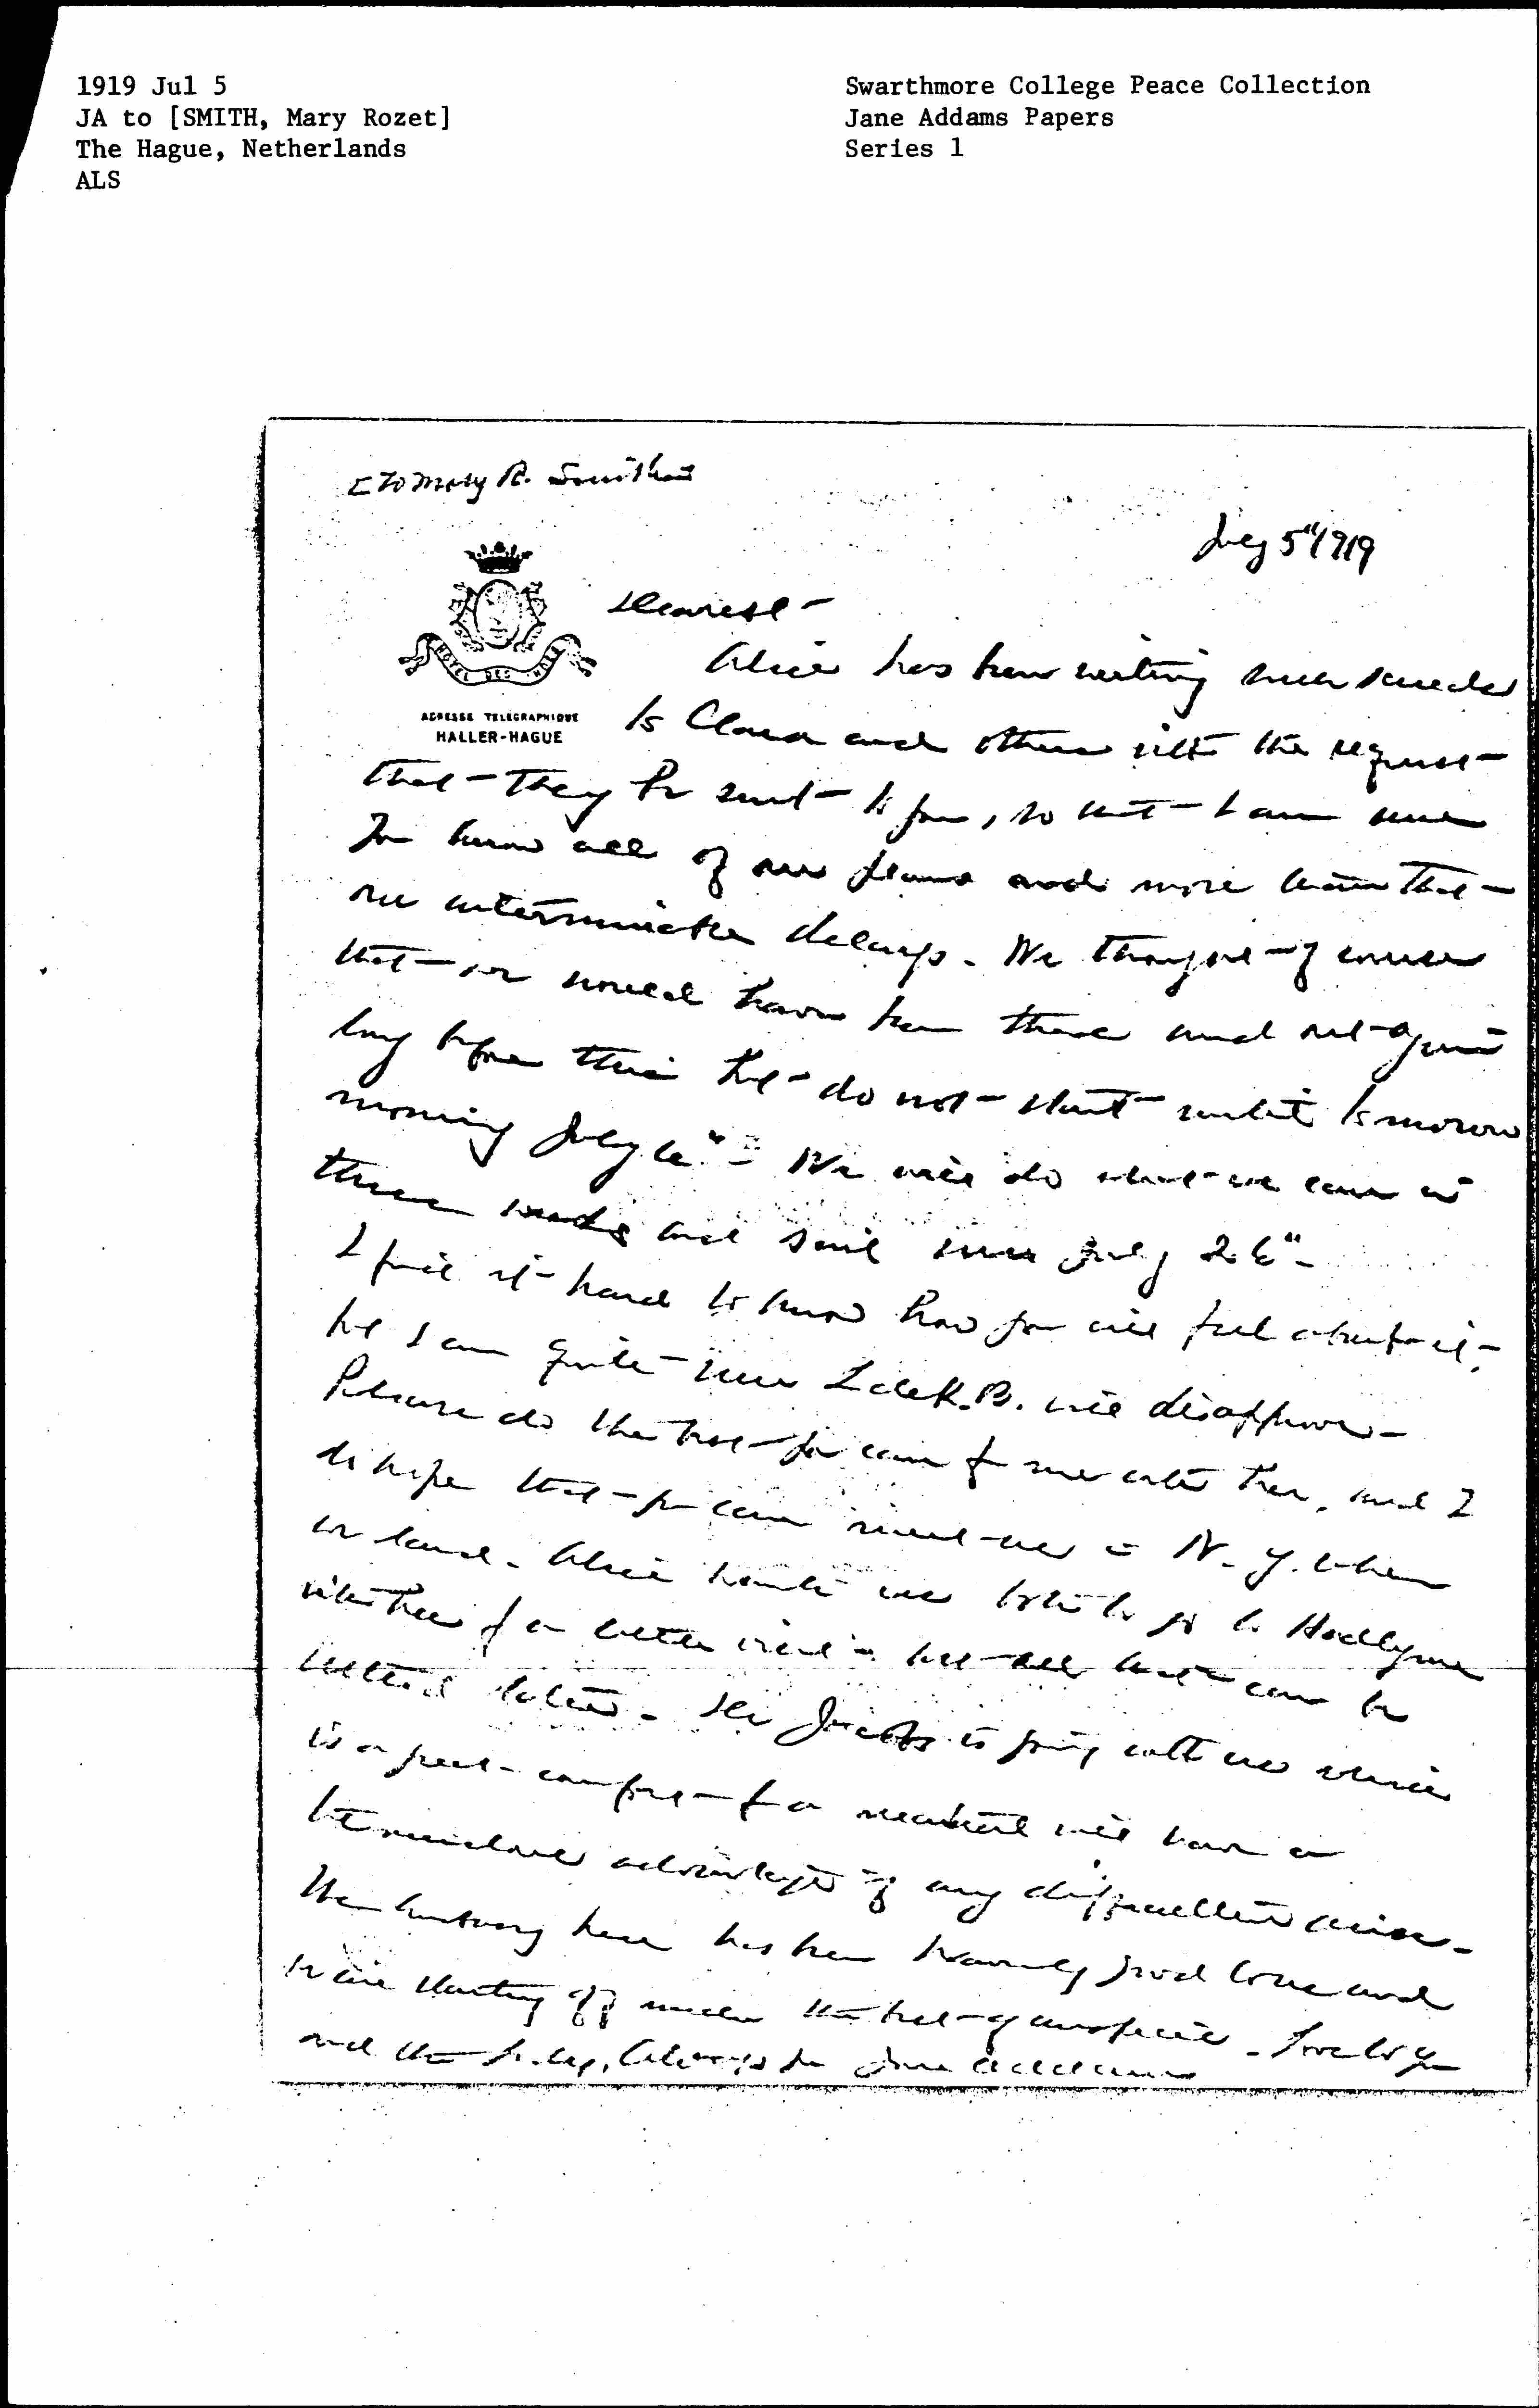 1919 Jul 5
JA to [SMITH, Mary Rozet]
The Hague, Netherlands
ALS
Swarthmore College Peace Collection
Jane Addams Papers
Series 1
[To Mary R. Smith]
July 5" 1919
HOTEL DES
ADRESSE TELEGRAPHIQUE
HALLER-HAGUE
Dearest -
Alice has been writing such screeds
to Clara and others with the request
that they be sent to you, so that I am sure
You know all of our plans and more than that
our interminable delays. We thought of course
that we would have been there and out again
long before this but do not start until tomorrow
morning July 6" - We will do what we can in
three weeks and sail July 26" -
I find it hard to know how you will feel about it -
but I am quite sure L deK. B. will disapprove -
Please do the best you can for me with her, and I
do hope that you can meet us in N. Y. when
we land. Alice wants us both to go to Hadlyme
with her for a little visit - but all that can be
settled later. Dr Jacobs is going with us which
is a great comfort for a neutral will have a
tremendous advantage if any difficulties arise -
The here has been good love and
we are starting off under the best of auspices - Love to you
and the Always yr Jane Addams